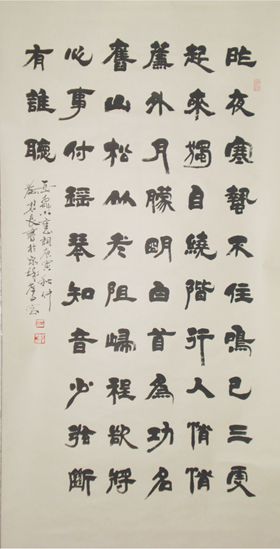 昨夜寒蛩不住鳴已三更
起來獨自繞階行人悄悄
簾外月朦明白首為功名
舊山松竹老阻歸程欲將
心事付瑤琴知音少弦斷
有誰聽
岳飛小重詞庚寅秋仲